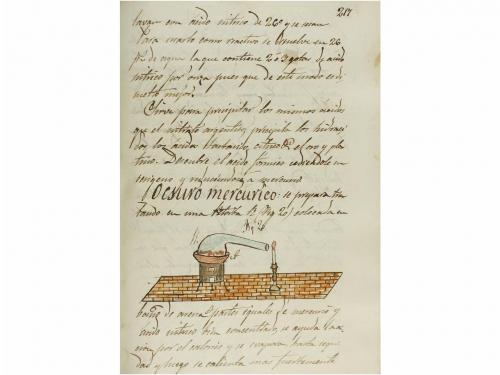 217
lavar con acido nitrico de 26° y se seca
Para usarlo como reactivo se disuelve en 26
pts de agua la que contiene 2 ó 3 gotas de acido
nitrico por onza pues que de este modo es
mucho mejor.
Sirve para precipitar los mismos acidos
que el nitrato argentico, precipita los
los acidos tartarico, citrico el oro y pla
tino. Descubre el acido formico cediendole su
oxigeno y reduciendose a mercurio
Ocsuro mercurico: se prepara tra
tando en una retorta B (Fig 20) colocada en
Fig.ª 20
A
baño de arena 2 partes iguales de mercurio y
acido nitrico bien concentrado, se ayuda la ac
cion por el calorico y se evapora hasta seque
dad y luego se calienta mas fuertemente